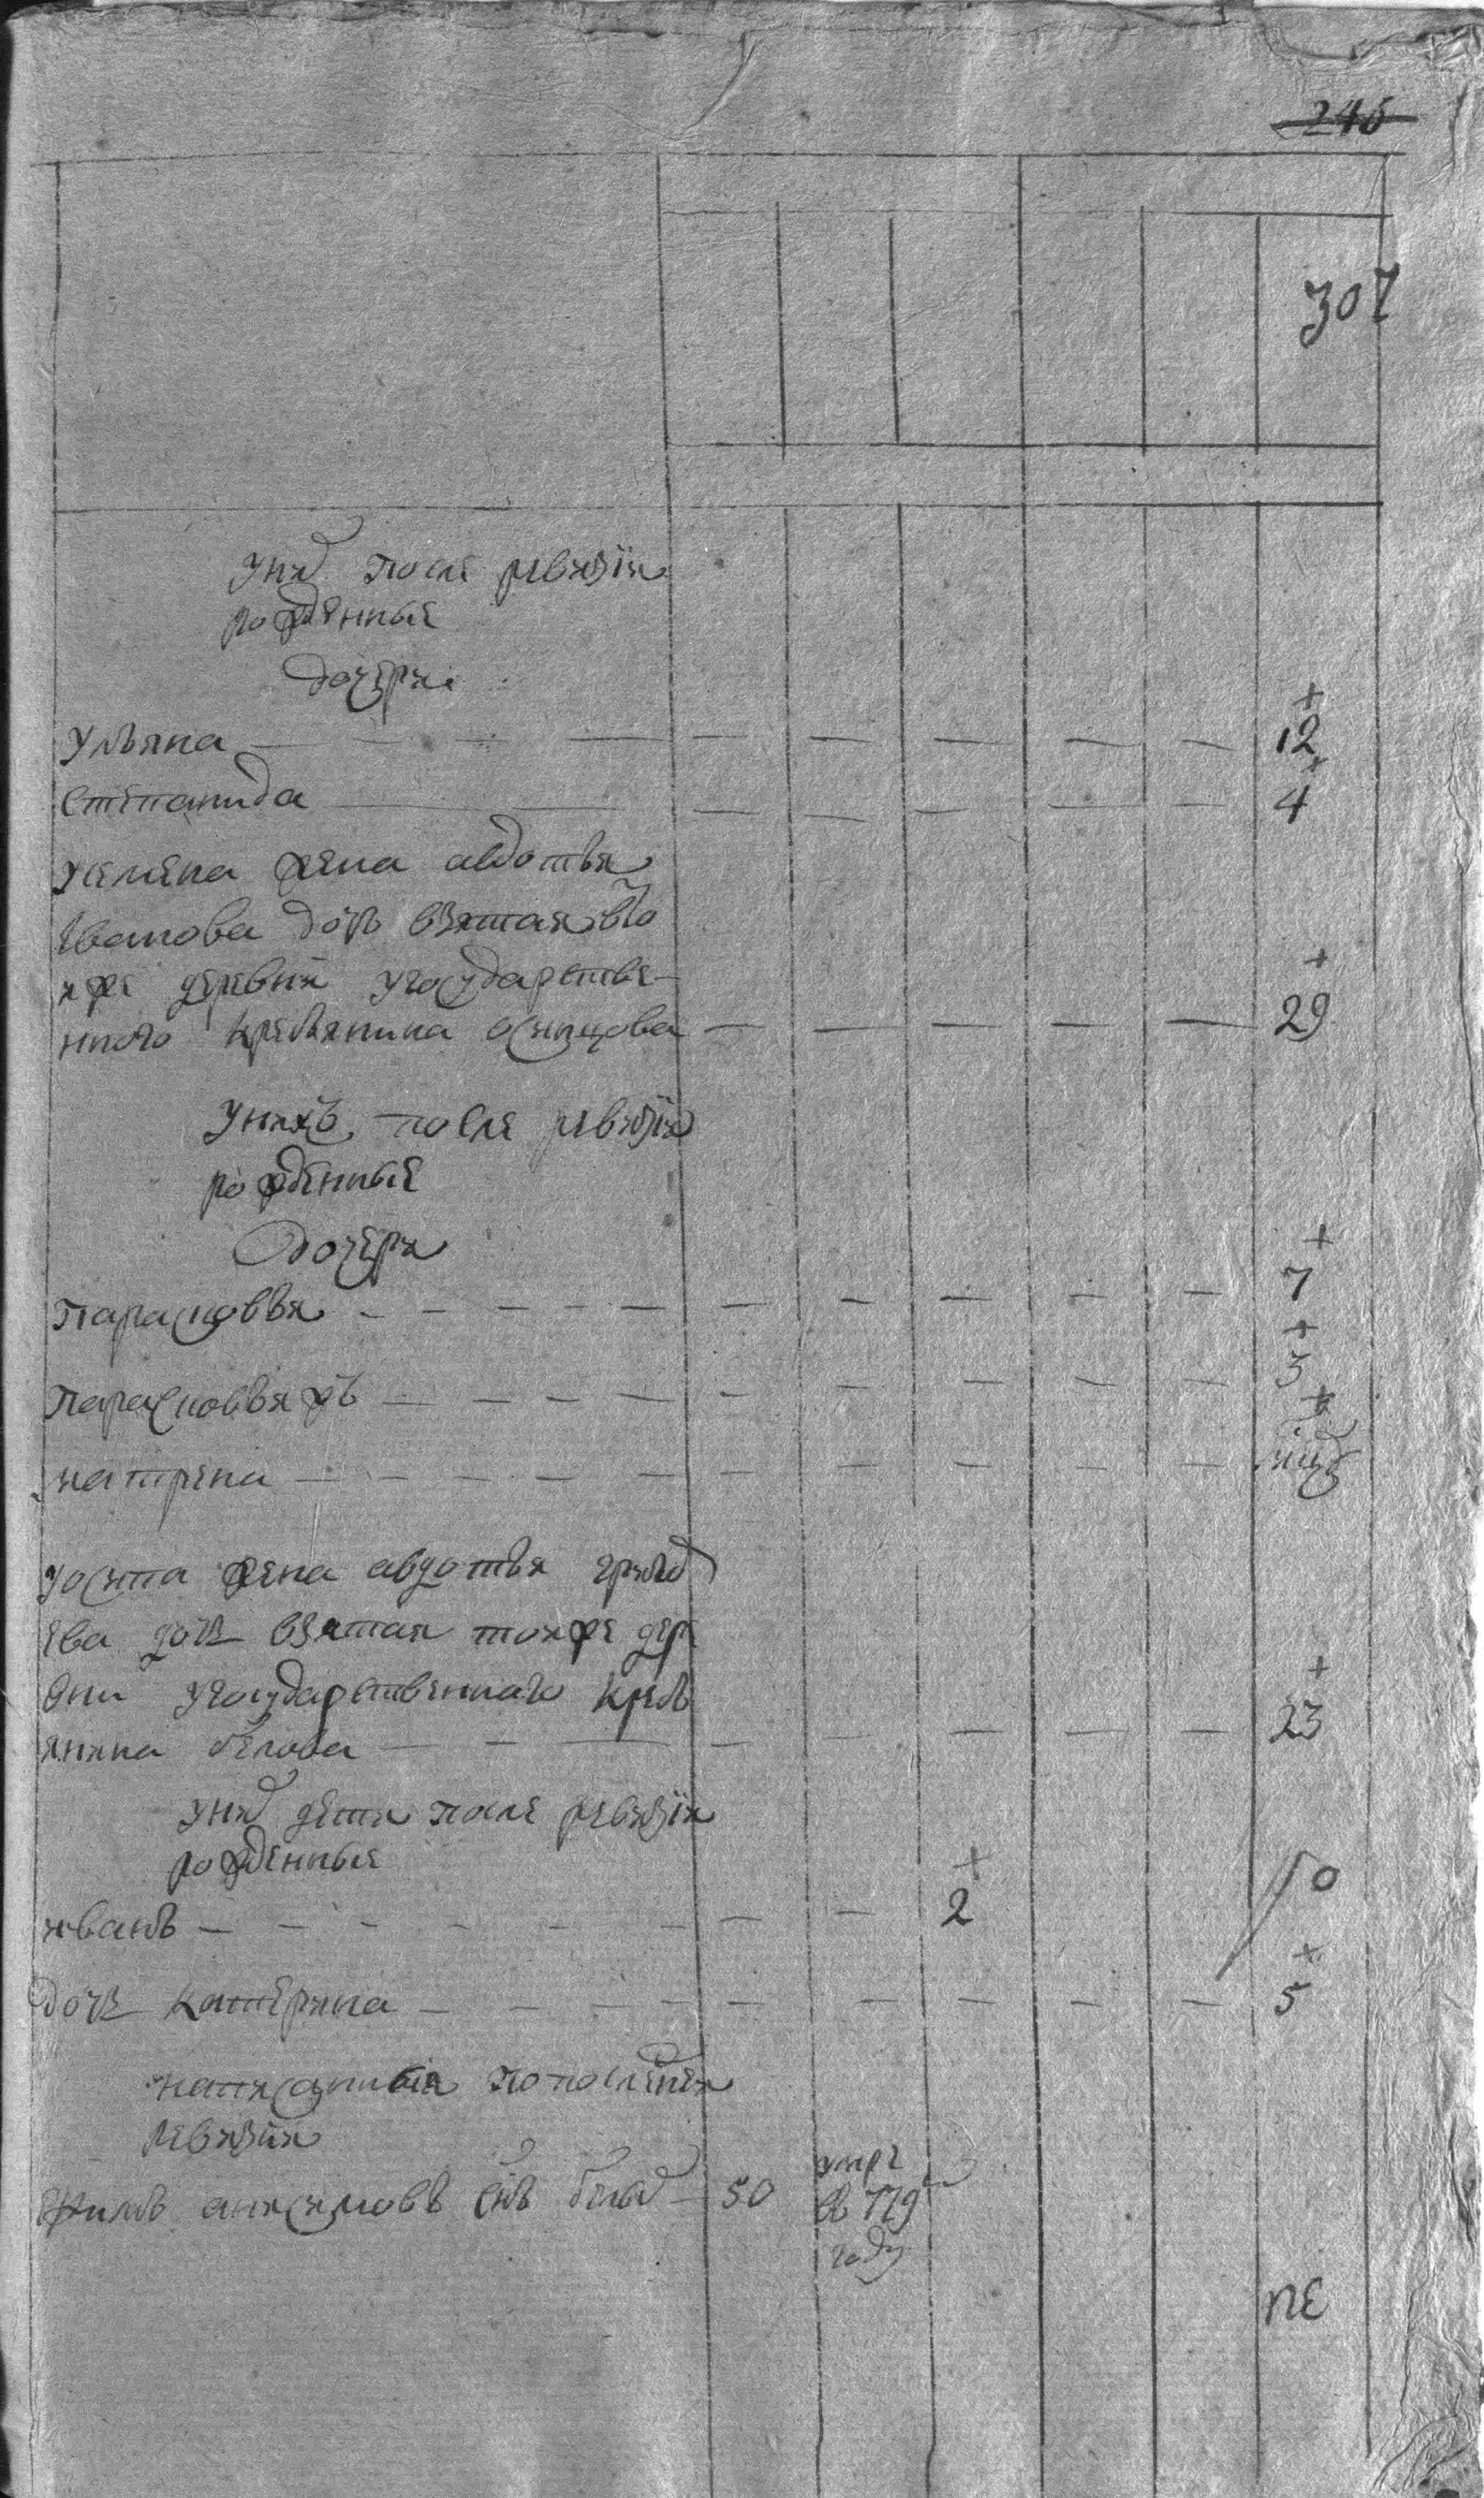 246
307
у них после ревизiи
рожденные
дочери
ульяна — 12
степанида — 4
жена авдотья
иванова дочь взятая в то
и же деревни у государстве-
нного крестьянина осинцова — 29
у них после ревизiи
рожденные
дочери
парасковья — 7
парасковья ж — 5
матрена
жена авдотья
ева дочь взятая той же дер
вни у государственнаго кресть
янина белова — 23
у них дети после ревизiи
рожденные
10
иванъ — 2
дочь катерина — 5
написанныя по последней
ревизии
анисимовъ снъ — 50 умре
в 779
году
не